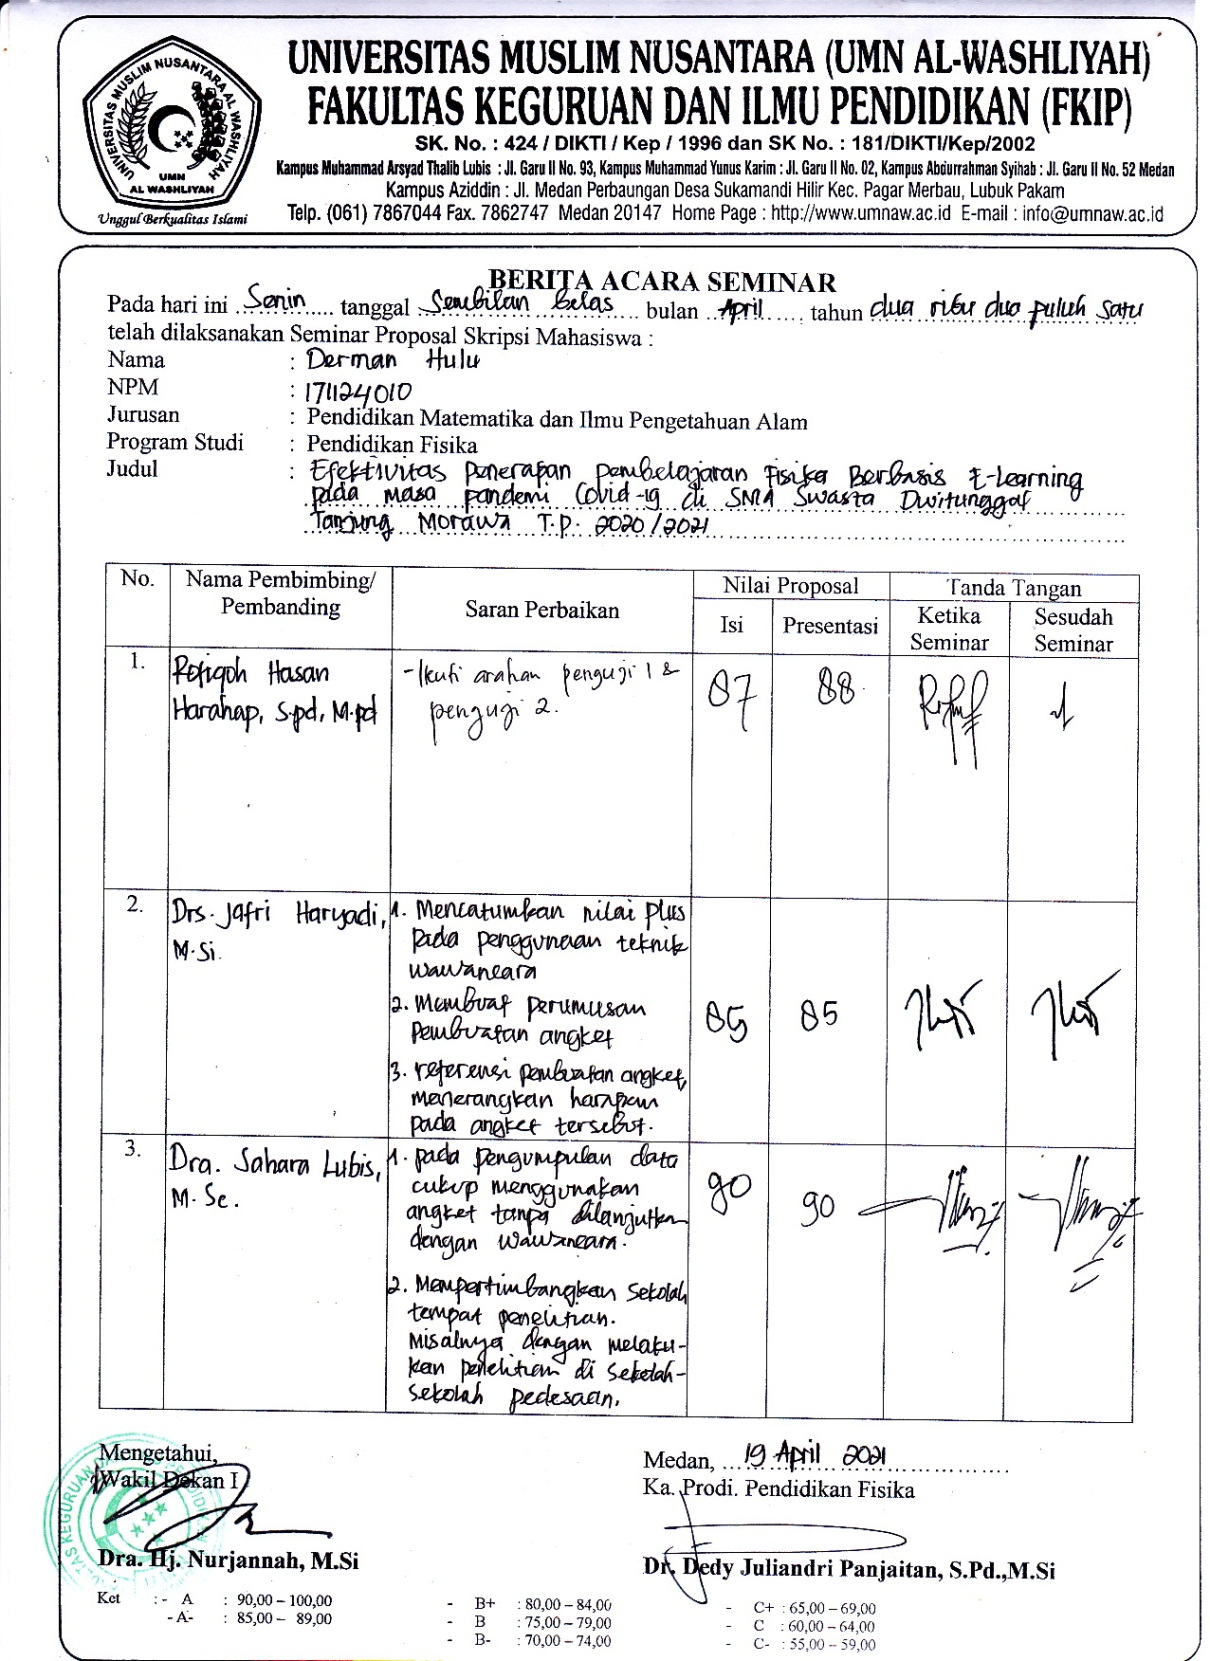 UNIVERSITAS MUSLIM NUSANTARA AL WASHLIYAH
UMN
AL WASHLIYAH
Unggul Berkualitas Islami
UNIVERSITAS MUSLIM NUSANTARA (UMN AL-WASHLIYAH)
FAKULTAS KEGURUAN DAN ILMU PENDIDIKAN (FKIP)
SK. No. : 424 / DIKTI / Kep / 1996 dan SK No. : 181/DIKTI/Kep/2002
Kampus Muhammad Arsyad Thalib Lubis : Jl. Garu II No. 93, Kampus Muhammad Yunus Karim : Jl. Garu II No. 02, Kampus Abdurrahman Syihab : Jl. Garu II No. 52 Medan
Kampus Aziddin : Jl. Medan Perbaungan Desa Sukamandi Hilir Kec. Pagar Merbau, Lubuk Pakam
Telp. (061) 7867044 Fax. 7862747 Medan 20147 Home Page : http://www.umnaw.ac.id E-mail : info@umnaw.ac.id
BERITA ACARA SEMINAR
Pada hari ini Senin tanggal Sembilan belas bulan April tahun dua ribu dua puluh satu
telah dilaksanakan Seminar Proposal Skripsi Mahasiswa :
Nama : Derman Hulu
NPM : 171124010
Jurusan : Pendidikan Matematika dan Ilmu Pengetahuan Alam
Program Studi : Pendidikan Fisika
Judul : Efektivitas Penerapan Pembelajaran Fisika Berbasis E-Learning
pada masa pandemi Covid-19 di SMA Swasta Dwitunggal
Tanjung Morawa T.P. 2020/2021
No. Nama Pembimbing/ Pembanding Saran Perbaikan Nilai Proposal Tanda Tangan
Isi Presentasi Ketika Seminar Sesudah Seminar
1. Rofiqoh Hasan
Harahap, S.pd, M.pd
- Ikuti arahan penguji 1 &
penguji 2.
87 88
2. Drs. Jafri Haryadi,
M.Si.
1. Mencatumkan nilai plus
pada penggunaan teknik
wawancara
2. Membuat perumusan
pembuatan angket
3. referensi pembuatan angket,
menerangkan harapan
pada angket tersebut.
85 85
3. Dra. Sahara Lubis,
M. Sc.
1. pada pengumpulan data
cukup menggunakan
angket tanpa dilanjutkan
dengan wawancara.
2. Mempertimbangkan sekolah
tempat penelitian.
Misalnya dengan melaku-
kan penelitian di sekolah-
sekolah pedesaan.
90 90
Mengetahui,
Wakil Dekan I
Dra. Hj. Nurjannah, M.Si
Medan, 19 April 2021
Ka. Prodi. Pendidikan Fisika
Dr. Dedy Juliandri Panjaitan, S.Pd.,M.Si
Ket : - A : 90,00 – 100,00
- A- : 85,00 – 89,00
- B+ : 80,00 – 84,00
- B : 75,00 – 79,00
- B- : 70,00 – 74,00
- C+ : 65,00 – 69,00
- C : 60,00 – 64,00
- C- : 55,00 – 59,00